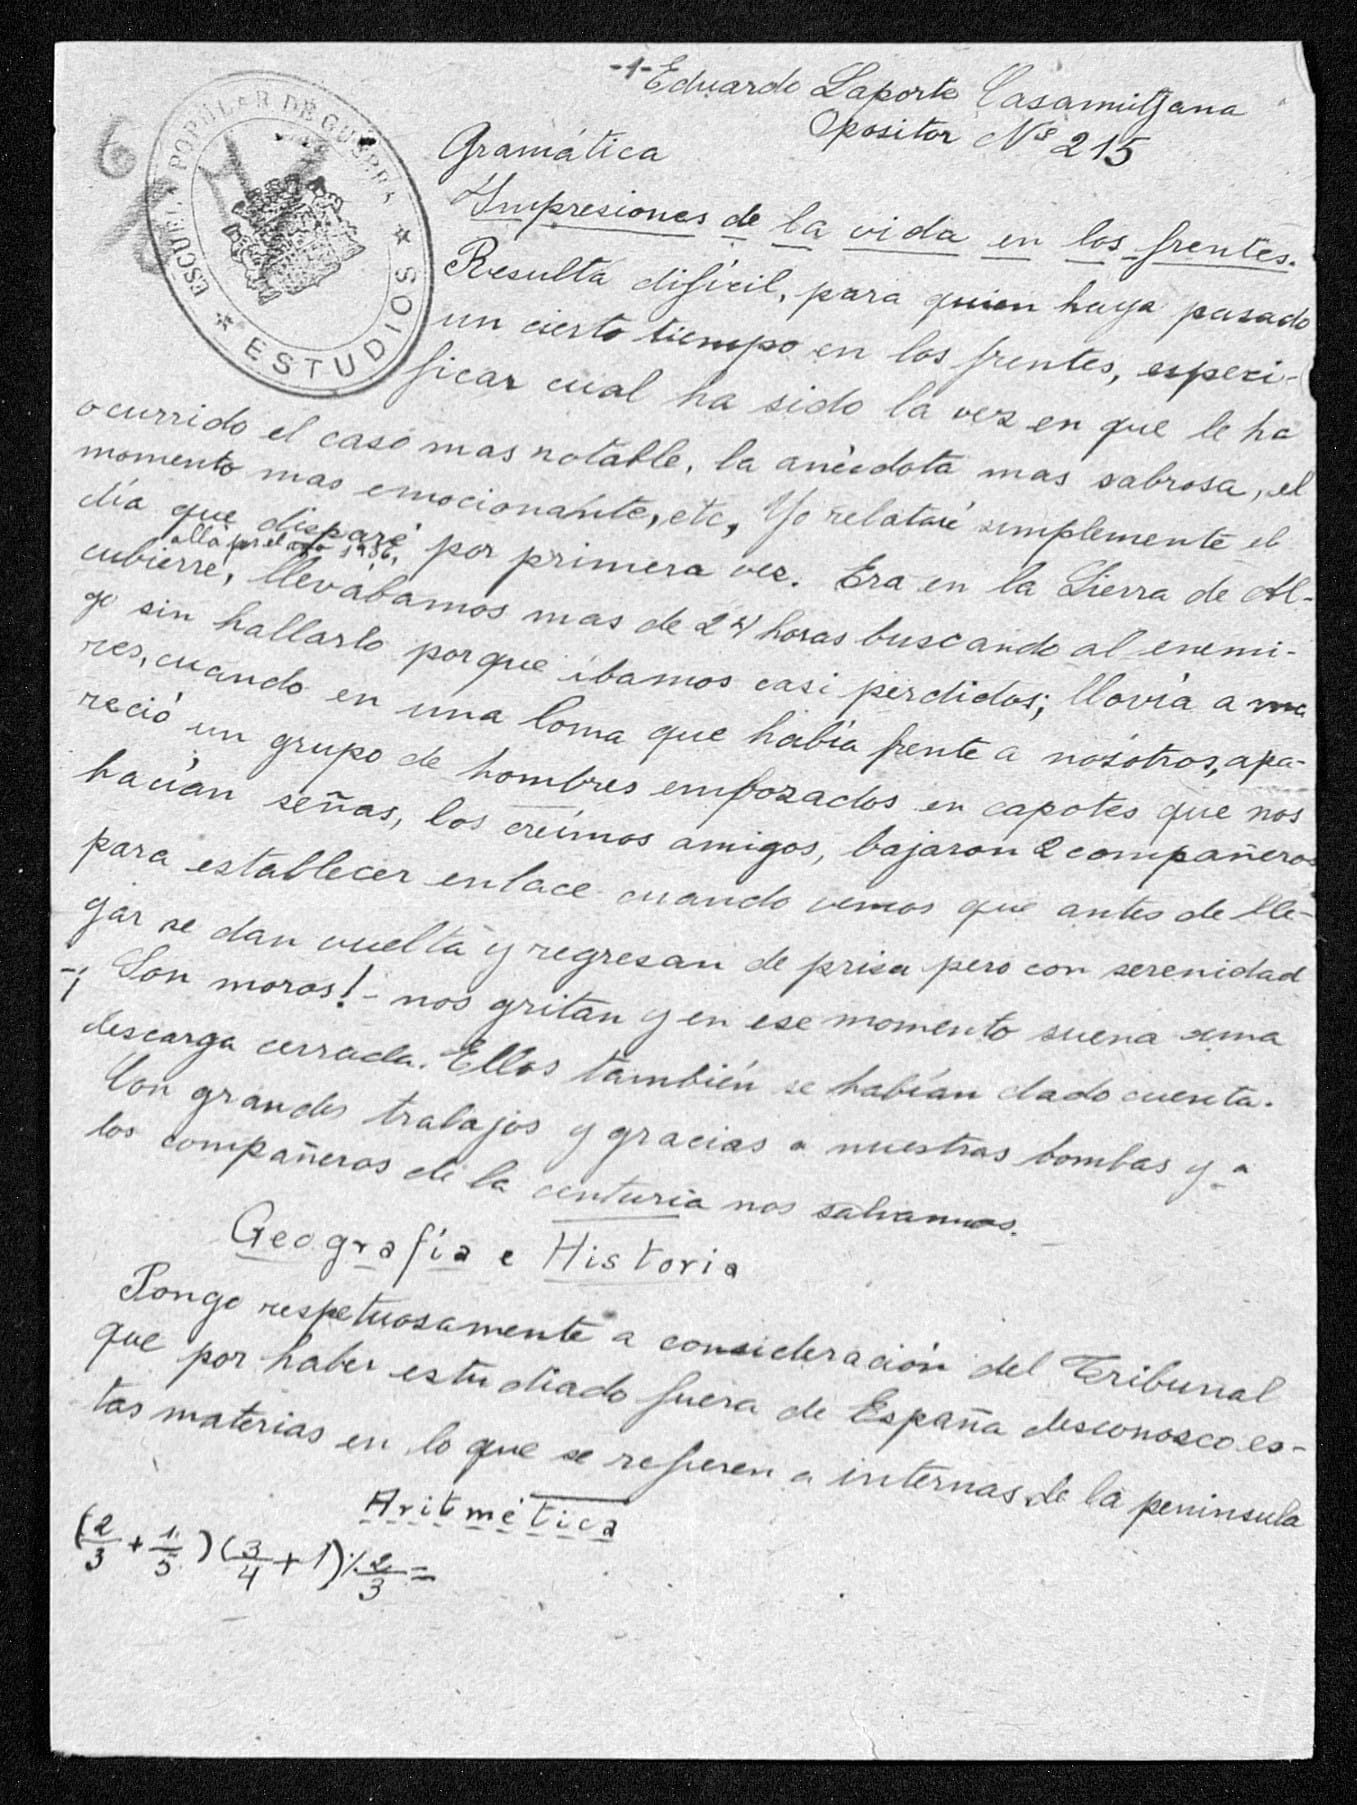 -1- Eduardo Laporte Casamitjana
Opositor Nº 215
ESCUELA POPULAR DE GUERRA
★ ESTUDIOS ★
6
Gramática
Impresiones de la vida en los frentes.
Resulta difícil, para quien haya pasado
un cierto tiempo en los frentes, especi-
ficar cual ha sido la vez en que le ha
ocurrido el caso mas notable, la anécdota mas sabrosa, el
momento mas emocionante, etc, Yo relataré simplemente el
día que disparé por primera vez. Era en la Sierra de Al-
allá por el año 1936,
cubierre, llevábamos mas de 24 horas buscando al enemi-
go sin hallarlo porque íbamos casi perdidos; llovía a ma
res, cuando en una loma que había frente a nosotros, apa-
reció un grupo de hombres embozados en capotes que nos
hacían señas, los creímos amigos, bajaron 2 compañeros
para establecer enlace cuando vemos que antes de lle-
gar se dan vuelta y regresan de prisa pero con serenidad
-¡Son moros!- nos gritan y en ese momento suena una
descarga cerrada. Ellos también se habían dado cuenta.
Con grandes trabajos y gracias a nuestras bombas y a
los compañeros de la centuria nos salvamos.
Geografía e Historia
Pongo respetuosamente a consideración del Tribunal
que por haber estudiado fuera de España desconosco es-
tas materias en lo que se refieren a internas de la peninsula
Aritmética
(2/3 + 1/5)(3/4 + 1) ÷ 2/3 =